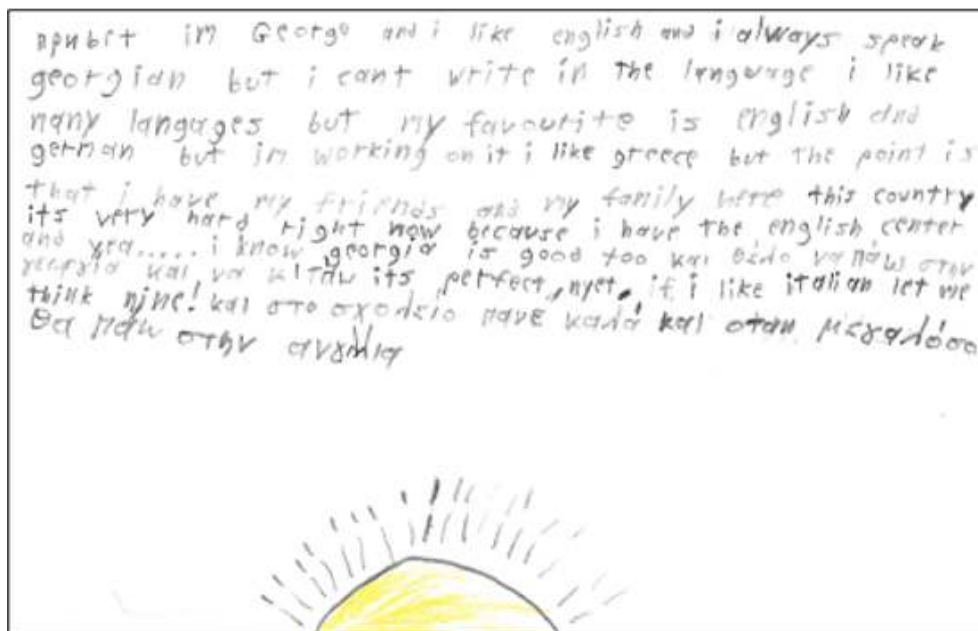 прибет im George and i like english and i always speak
georgian but i cant write in the langwage i like
many langages but my favourite is english and
german but im working on it i like greece but the point is
that i have my friends and my family here this country
its very hard right now because i have the english center
and yea..... i know georgia is good too και θέλο να πάω στην
γεοργία και να κιτάω its perfect, nyet, if i like italian let me
think njne! και στο σχολείο πανε καλά και οταν μεγαλόσο
θα πάω στην ανγλια